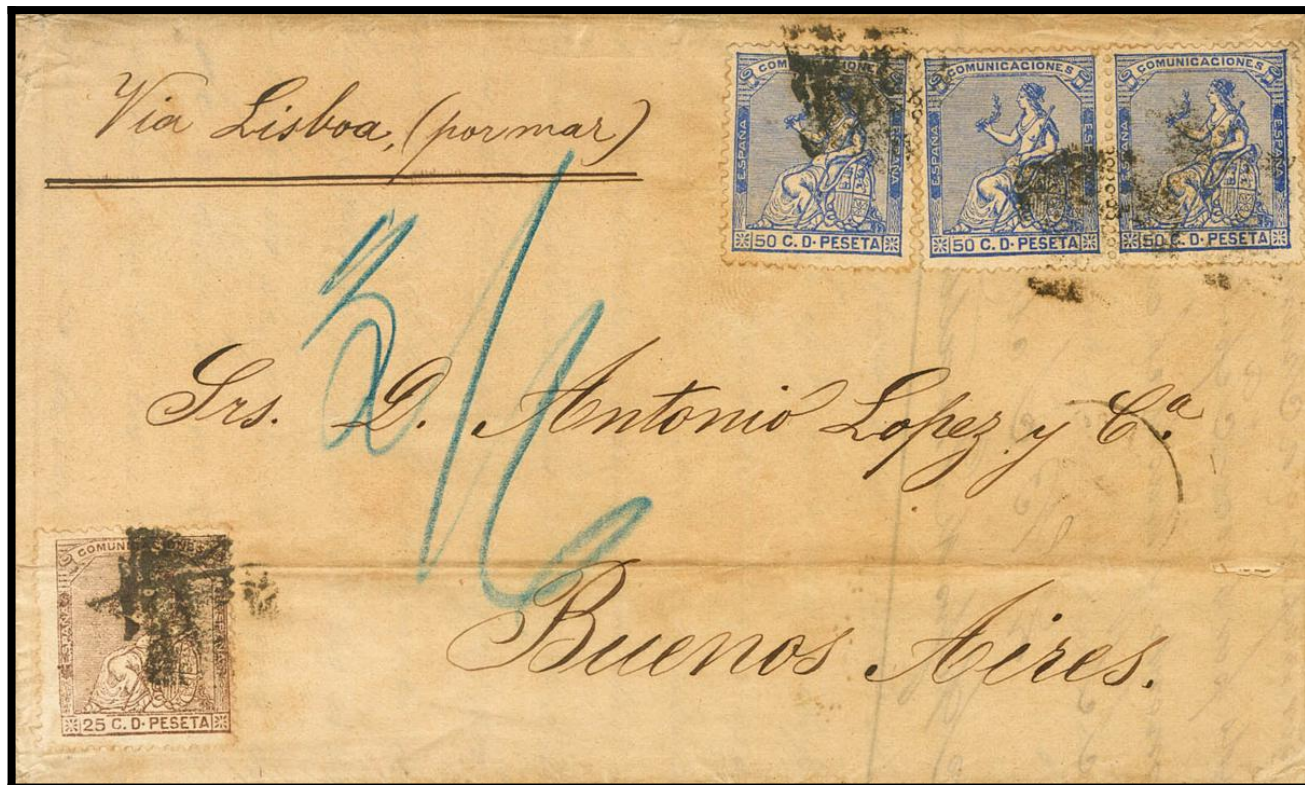 Via Lisboa, (por mar)
COMUNICACIONES
ESPAÑA
ESPAÑA
50 C. D. PESETA
COMUNICACIONES
ESPAÑA
50 C. D. PESETA
COMUNICACIONES
ESPAÑA
ESPAÑA
50 C. D. PESETA
Srs. D. Antonio Lopez y Cª
Buenos Aires.
ESPAÑA
25 C. D. PESETA